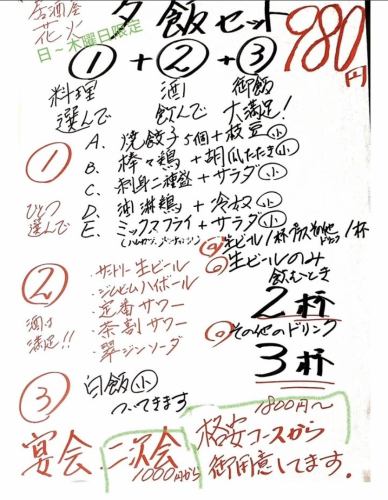 居酒屋
花火
日～木曜日限定
夕飯セット
980円
①+②+③
料理 酒 御飯
選んで 飲んで 大満足!
① ひとつ選んで
A. 焼餃子5個+枝豆小
B. 棒々鶏+胡瓜たたき小
C. 刺身二種盛+サラダ小
D. 油淋鶏+冷奴小
E. ミックスフライ+サラダ小
② 酒は満足!!
・サントリー生ビール
・ジムビームハイボール
・定番サワー
・茶割サワー
・翠ジンソーダ
◎生ビール1杯プラスその他ドリンク1杯
◎生ビールのみ
飲むとき
2杯
◎その他のドリンク
3杯
③ 白飯小
ついてきます
宴会、二次会
1000円から
1800円～
格安コースから
御用意してます。